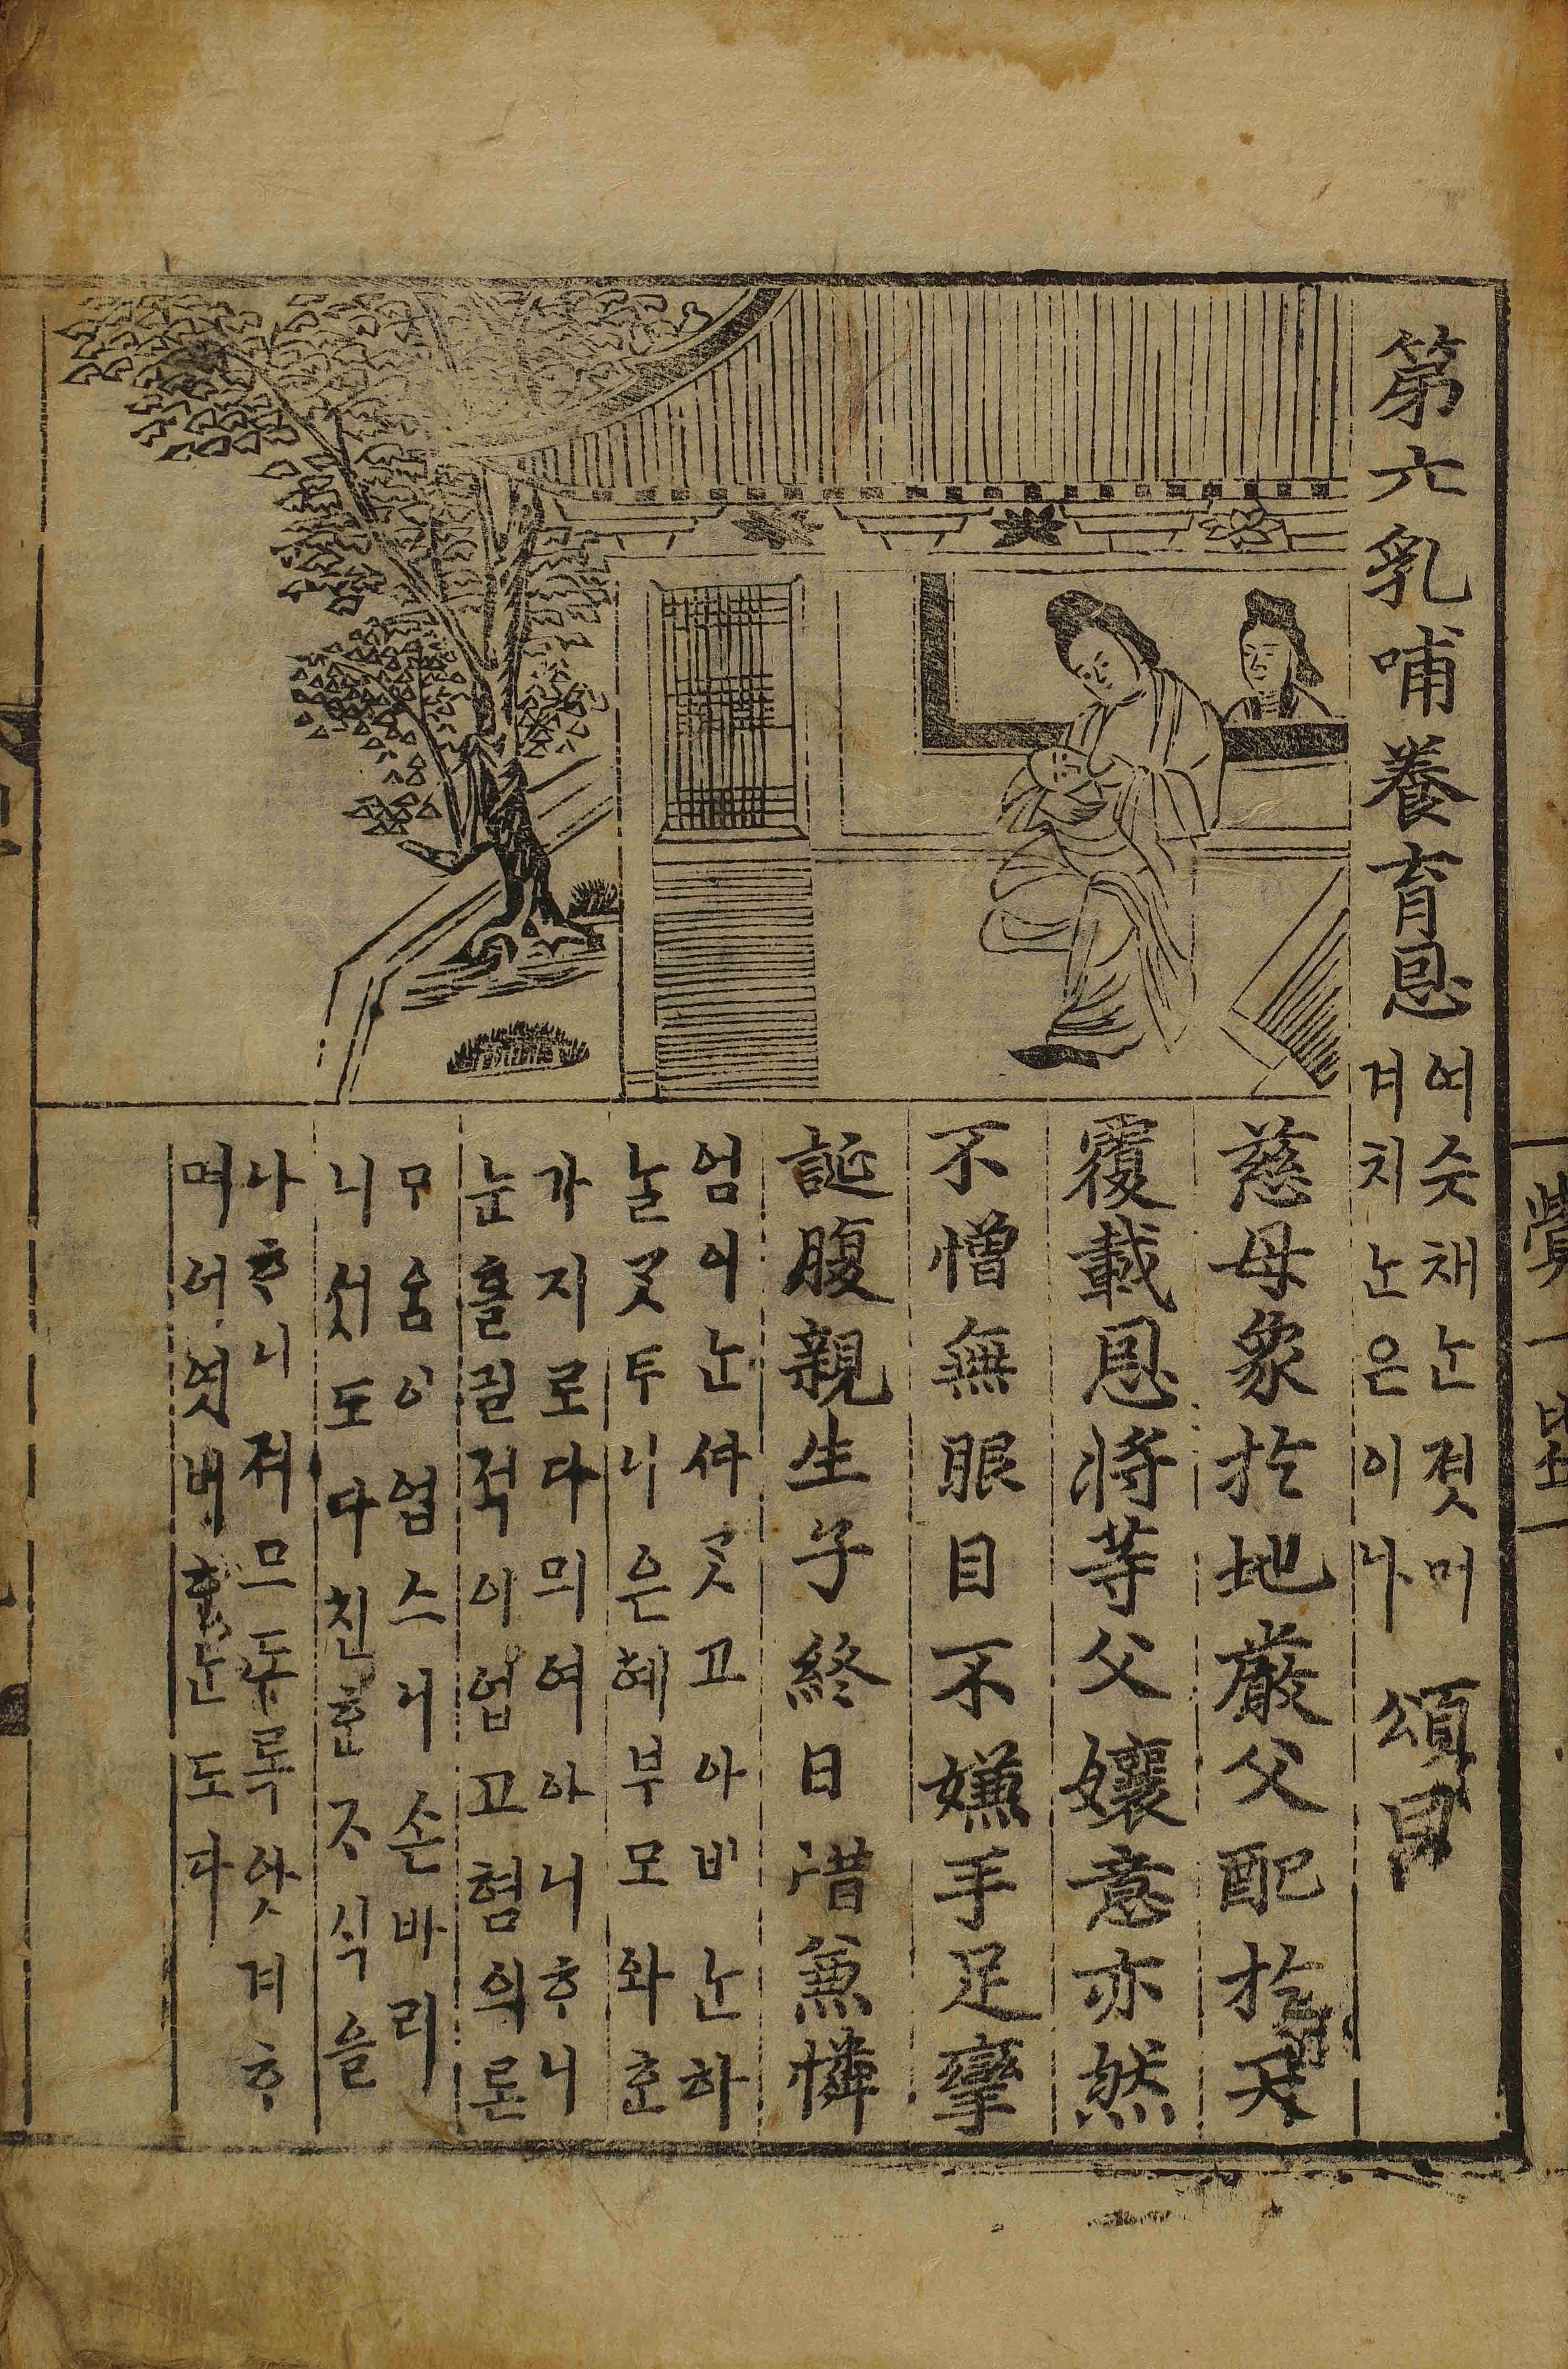 第六乳哺養育恩
여슷채ᄂᆞᆫ졋머
겨치ᄂᆞᆫ은이나
頌曰
慈母象於地嚴父配於天
覆載恩將等父孃意亦然
不憎無眼目不嫌手足攣
誕腹親生子終日惜兼憐
엄이ᄂᆞᆫ ᄯᅡ ᄀᆞᆺ고 아비ᄂᆞᆫ 하
ᄂᆞᆯ ᄀᆞᆺᄐᆞ니 은혜 부모와 ᄒᆞᆫ
가지로다 믜여 아니ᄒᆞ니
눈 흘긜 적이 업고 혐의론
ᄆᆞᄋᆞᆷᄋᆡ 업스니 손바리
니 섯도다 친ᄒᆞᆫ ᄌᆞ식을
나ᄒᆞ니 져므ᄃᆞ록 앗겨ᄒᆞ
며 어엿ᄲᅵ ᄒᆞᄂᆞᆫ도다